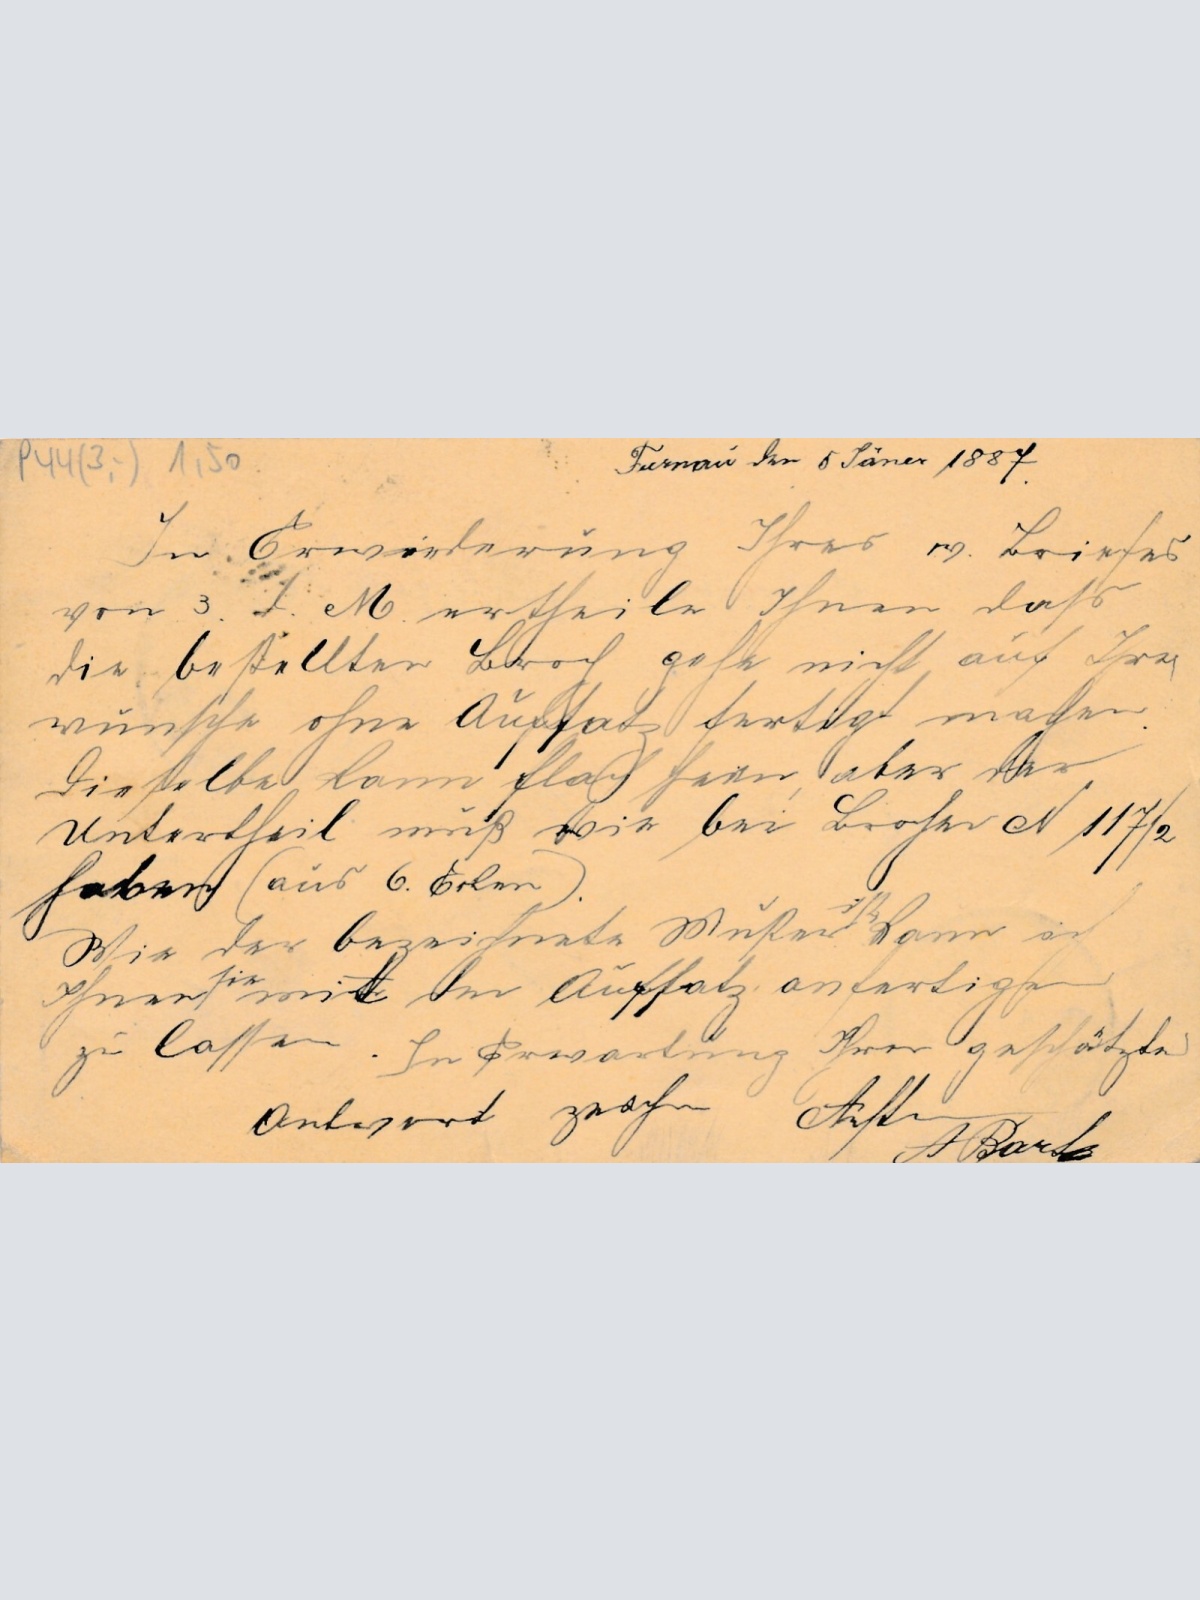 P44(3,-) 1,50
Turnau den 5 Jäner 1887.
In Erwiederung Ihres w. Briefes
von 3. d. M. ertheile Ihnen daß
die bestellten Broch gehe nicht auf Ihre
wunsche ohne Aufsatz fertigt machen.
Dieselbe kann flach sein, aber der
Untertheil muß wie bei Brochen N 117/2
haben (aus 6. Ecken).
Wie der bezeichnete Muster ist kann ich
Ihnen sie mit den Aufsatz anfertigen
zu lassen. In Erwartung Ihrer geschätzte
Antwort zeichn
A Bartl